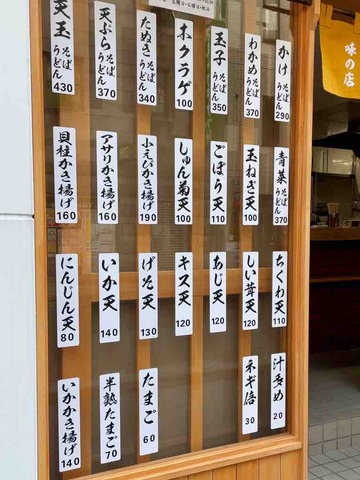 味の店
かけ そば うどん 290
わかめ そば うどん 370
玉子 そば うどん 350
木クラゲ 100
たぬき そば うどん 340
天ぷら そば うどん 370
天玉 そば うどん 430
青菜 そば うどん 370
玉ねぎ天 100
ごぼう天 110
しゅん菊天 100
小えびかき揚げ 190
アサリかき揚げ 160
貝柱かき揚げ 160
ちくわ天 110
しい茸天 120
あじ天 120
キス天 120
げそ天 130
いか天 140
にんじん天 80
汁多め 20
ネギ倍 30
たまご 60
半熟たまご 70
いかかき揚げ 140